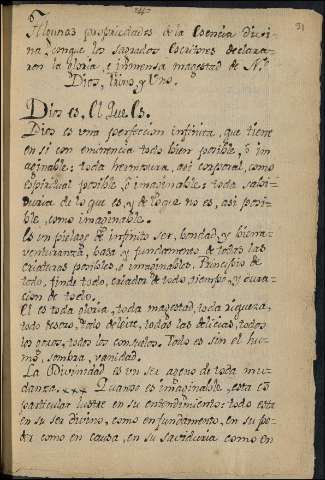 31
Algunas propriedades de la Esencia divi-
na, conque los sagrados Escritores declara-
ron la gloria, e inmensa magestad de N.
Dios, trino, y Uno.
Dios es, El Que Es.
Dios es una perfeccion infinita, que tiene
en si con eminencia todo bien posible, ô im
aginable: toda hermosura, asi corporal, como
espiritual posible, ê imaginable: toda sabi-
duria de lo que es, y de lo que no es, asi posi-
ble, como imaginable.
Es un pielago de infinito ser, bondad, y biena-
venturanza, basa, y fundamento de todas las
criaturas posibles, ê imaginables. Principio de
todo, fin de todo, criador de todo tiempo, y dura-
cion de todo.
El es toda gloria, toda magestad, toda riqueza,
todo tesoro, todo deleite, todas las delicias, todos
los gozos, todos los consuelos. Todo es sin el hu-
mo, sombra, vanidad.
La Divinidad es un ser ageno de toda mu-
danza. Quanto es imaginable, esta en
particular lustre en su entendimiento: todo esta
en su ser divino, como en fundamento, en su po-
der como en causa, en su sabiduria como en